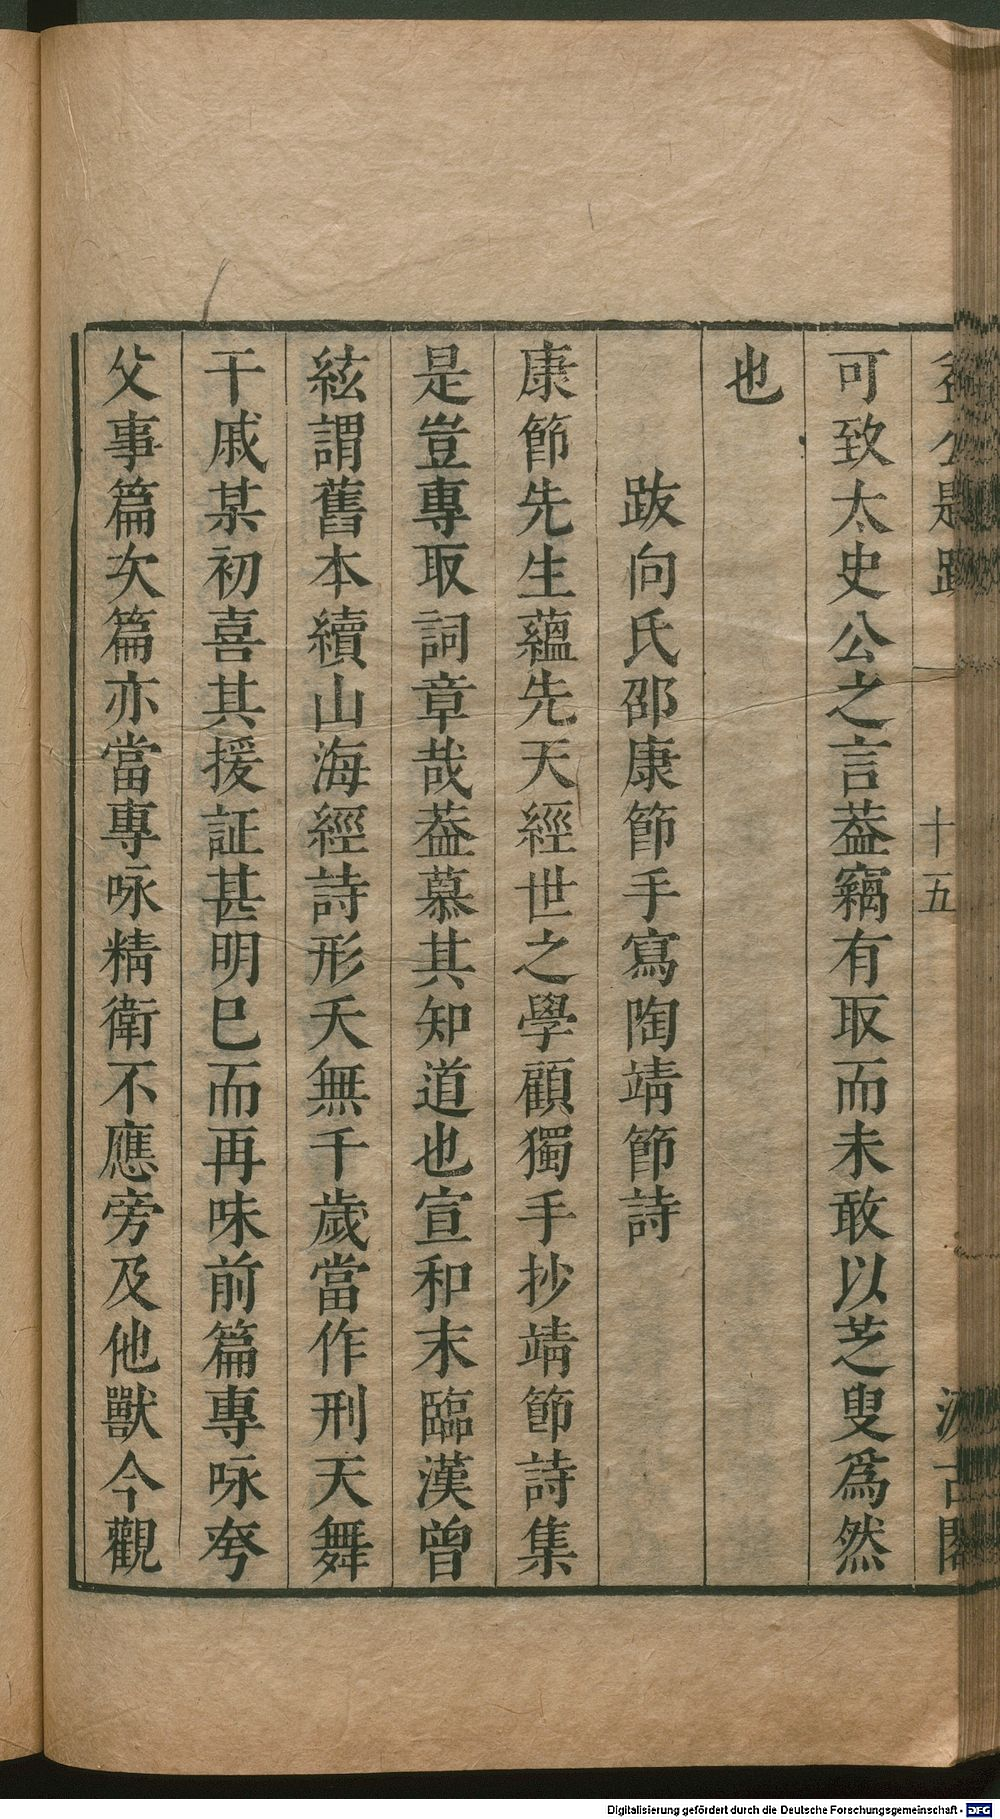 益公題跋 十五 汲古閣
可致太史公之言葢竊有取而未敢以芝叟爲然
也
跋向氏邵康節手寫陶靖節詩
康節先生蘊先天經世之學顧獨手抄靖節詩集
是豈專取詞章哉葢慕其知道也宣和末臨漢曾
紘謂舊本續山海經詩形夭無千歲當作刑天舞
干戚某初喜其援証甚明巳而再味前篇專咏夸
父事篇次篇亦當專咏精衛不應旁及他獸今觀
Digitalisierung gefördert durch die Deutsche Forschungsgemeinschaft - DFG